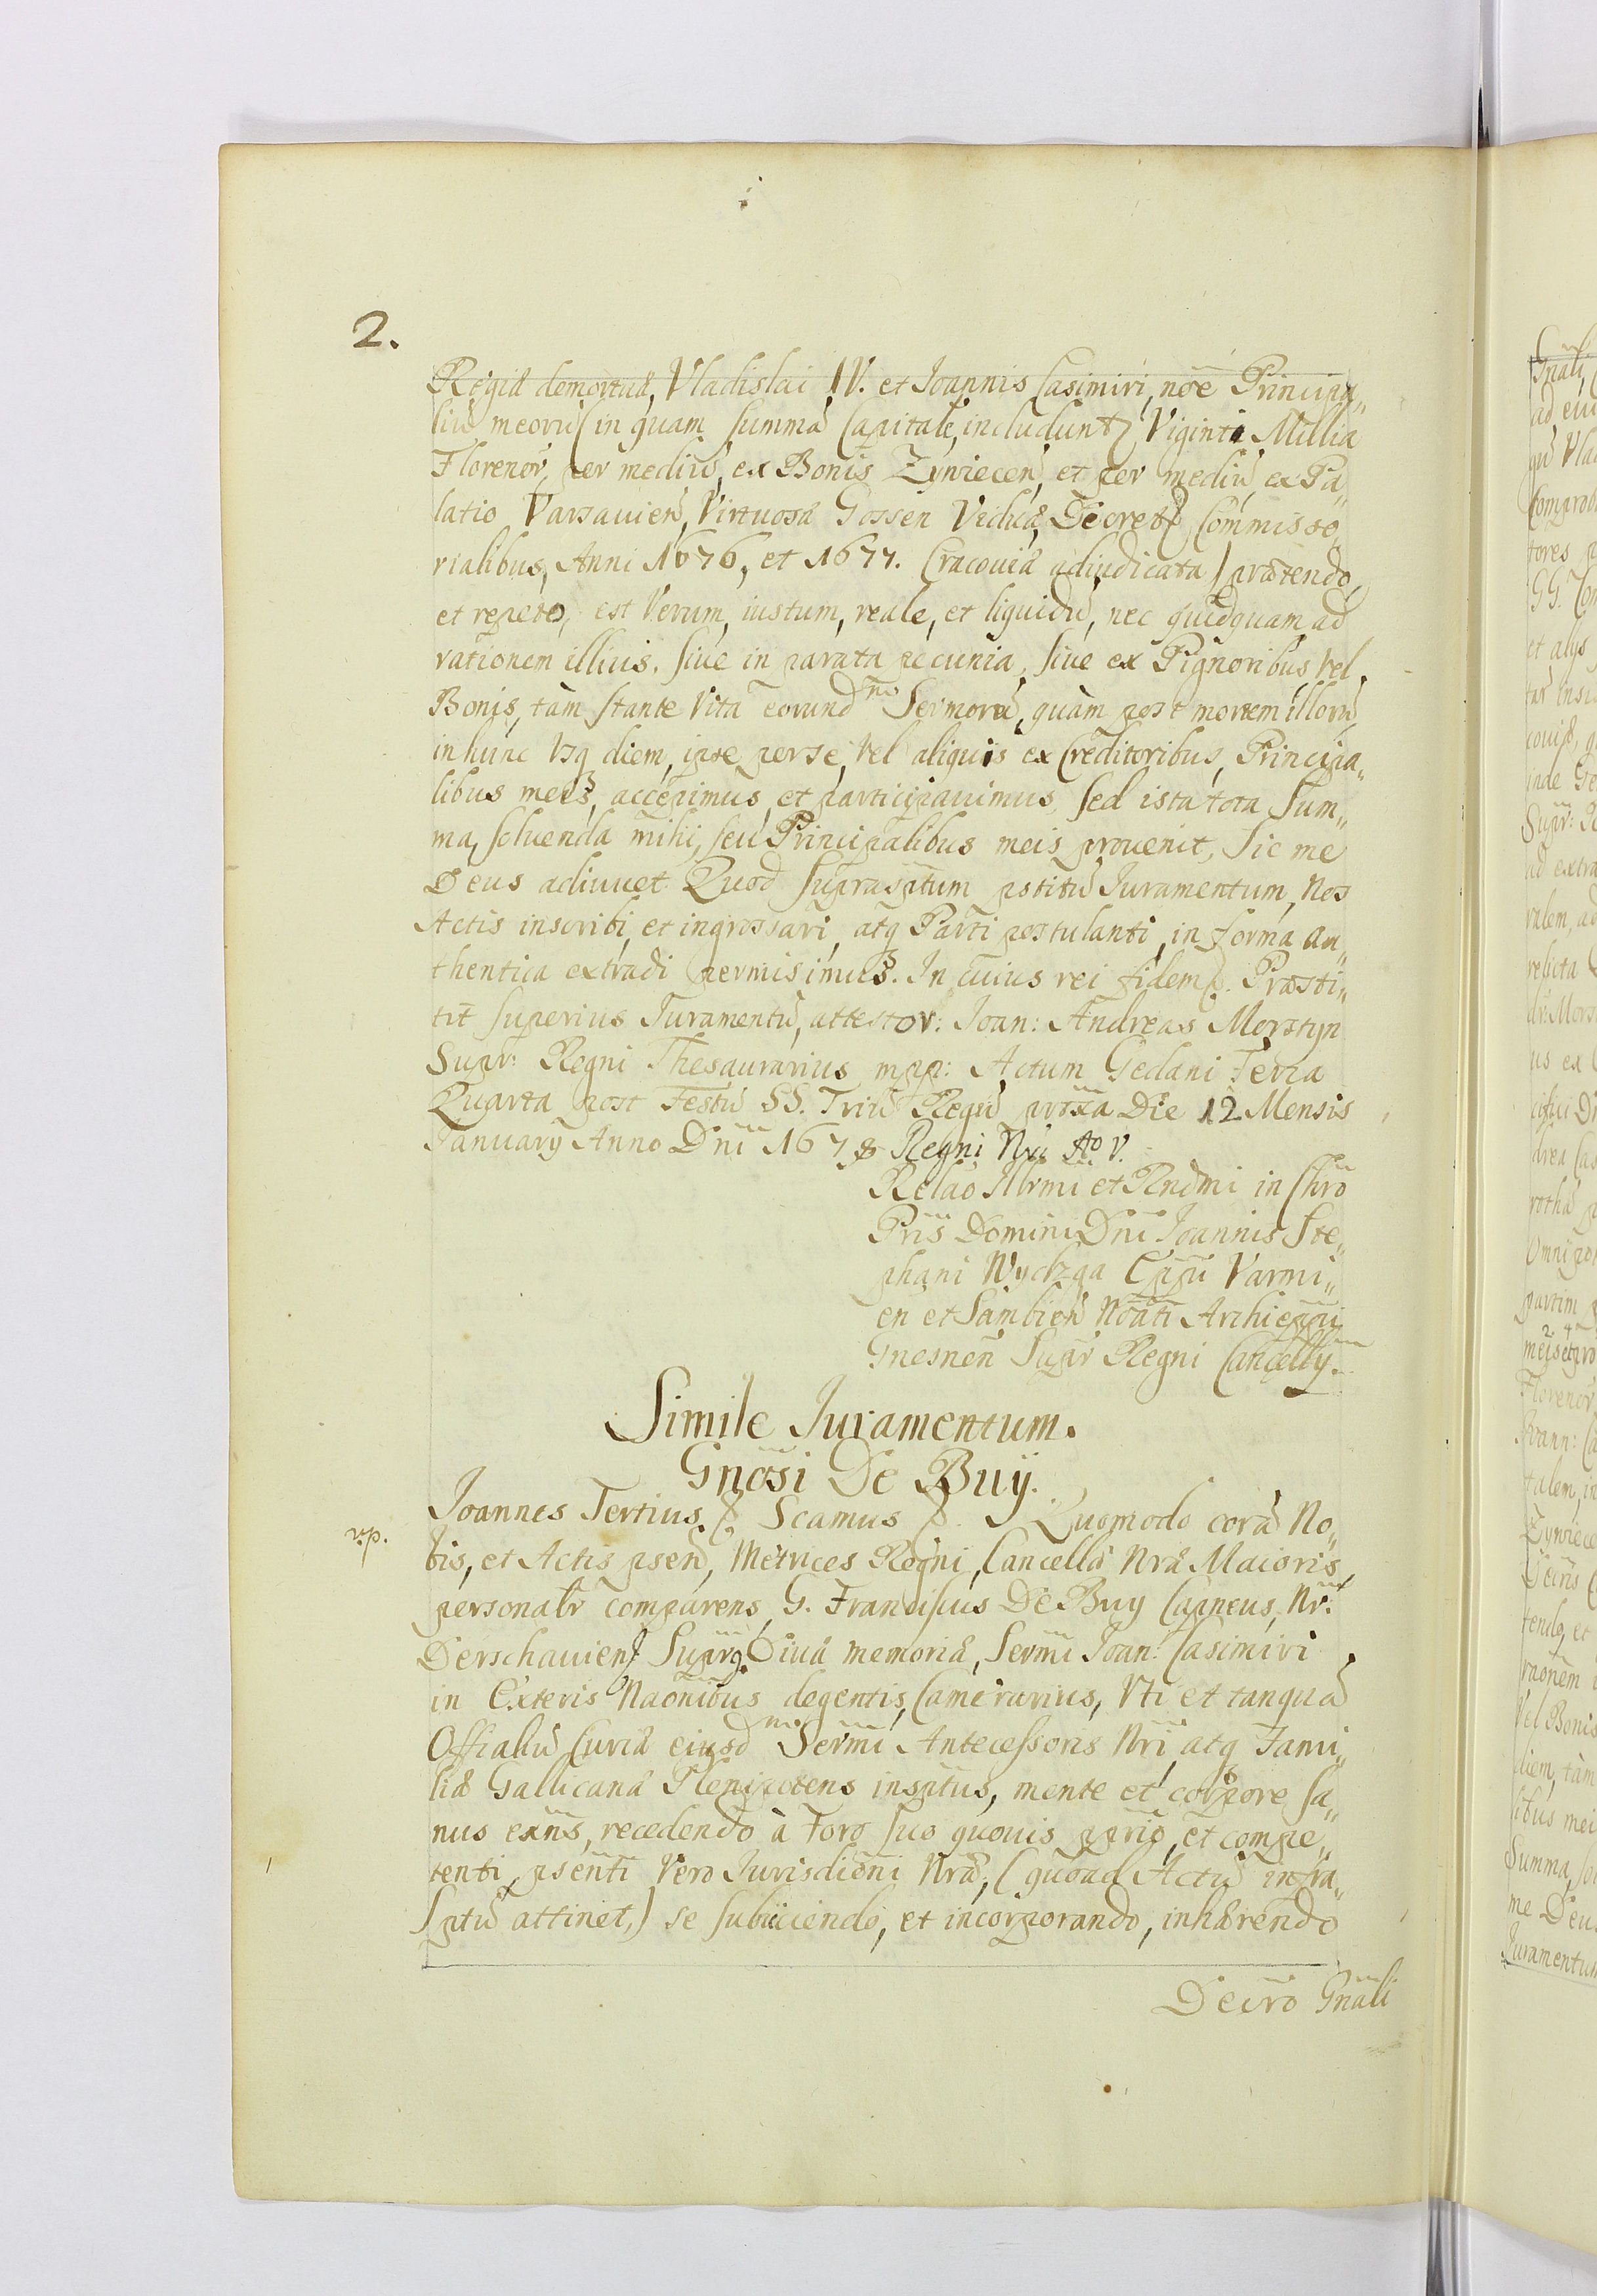 2.
Regiâ demortuâ, Vladislai IV. et Ioannis Casimiri, nõe Principa„
liũ meorũ (in quam summã Capitalẽ, includuntʒ Viginti Millia
Florenor̃, per mediũ, ex Bonis Zywiecen̄, et per mediũ, ex Pa„
latio Varsauien̄, Virtuosæ Gossen Viduæ, Decretꝭ Commisso„
rialibus, Anni 1676, et 1677. Cracouiæ adiudicata) prætendo,
et repeto, est Verum, iustum, reale, et liquidũ, nec quidquam ad
rationem illius, siue in parata pecunia, siue ex Pignoribus vel
Bonis, tàm stante Vita eorund̃ Sermorũ, quàm post mortem illorũ
in hunc Vsq diem, ipse per se, vel aliquis ex Creditoribus, Principa„
libus meis, accepimus, et participauimus, sed ista tota Sum„
ma, soluenda mihi, seu Principalibus meis prouenit, Sic me
Deus adiuuet. Quod supraspt̃um pstitũ Iuramentum, Nos
Actis inscribi, et ingrossari, atq Parti postulanti, in forma au„
thentica extradi permisimus. In cuius rei fidem &. Præsti„
tit superius Iuramentũ, attestor: Ioan: Andreas Morstyn
Supr: Regni Thesaurarius mpp: Actum Gedani Feria
Quarta post Festũ SS. Triũ Regũ pr̃oxa Die 12 Mensis
Ianuarÿ Anno Dñi 1678 Regni Nri Ao V.
Relaõ Illrmi et Rndmi in Chr̃o
Pr̃is Domini Dñi Ioannis Ste„
phani Wydzga Ep̃pi Varmi„
en et Sambien̄ Nõati Archiep̃pi
Gnesnen̄ Supr̃ Regni Cancellÿ.
Simile Iuramentum.
Gnõsi De Buÿ.
Ioannes Tertius & Scamus &. Quomodo corã No„
bis, et Actis psen̄, Metrices Regni, Cancellæ Nræ Maioris
personalr̃ comparens, G. Franciscus De Buy Capneus, Nr̃:
Derschauien̄ Suprq Diuæ memoriæ, Sermi Ioan: Casimiri
in Exteris Naõnibus degentis, Camerarius, Vti et tanquã
Officaliũ Curiæ eiusd̃ Serm̃i Antecessoris Nr̃i, atq Fami„
liæ Gallicanæ Plenipotens inspt̃us, mente et corpore sa„
nus exñs, recedendo à Foro suo quouis pprio, et compe„
tenti, psẽnti Vero Iurisdicõni Nræ, (quoad Actũ infra„
sptũ attinet,) se subiiciendo, et incorporando, inhærendo
Decr̃o Gñali